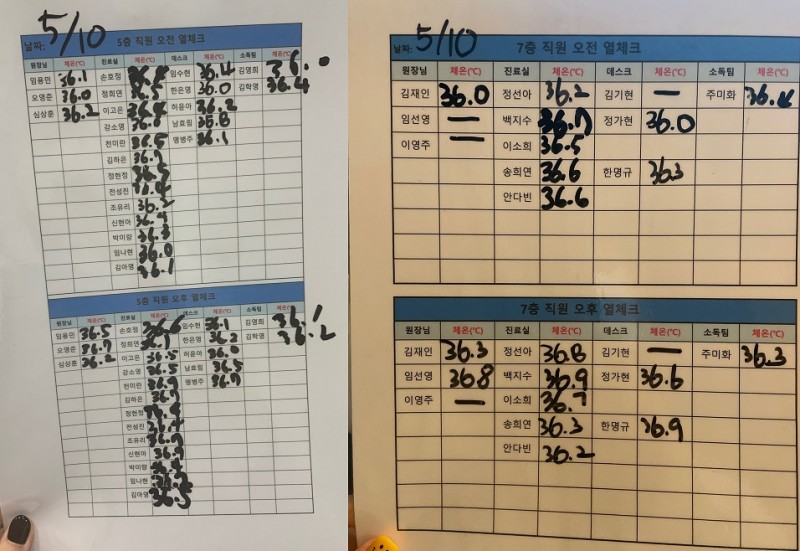 날짜: 5/10 5층 직원 오전 열체크
원장님 체온(℃) 진료실 체온(℃) 데스크 체온(℃) 소독팀 체온(℃)
임용민 36.1 손호정 임수현 36.4 김영희 36.0
오영준 36.0 정희연 한은영 36.0 김학영 36.4
심상훈 36.2 이고은 허윤아 36.2
강소영 남효림 35.8
천미란 36.5 맹병주 36.1
김하은 36.7
정현정 36.5
전성진 36.4
조유리 36.2
신현아
박미랑 36.3
임나현 36.0
김아영 36.1
5층 직원 오후 열체크
원장님 체온(℃) 진료실 체온(℃) 데스크 체온(℃) 소독팀 체온(℃)
임용민 36.5 손호정 36.6 임수현 36.1 김영희
오영준 36.7 정희연 한은영 36.2 김학영 36.2
심상훈 36.2 이고은 36.5 허윤아 36.0
강소영 36.5 남효림 36.5
천미란 맹병주 36.7
김하은 36.7
정현정
전성진 36.4
조유리 36.7
신현아 36.7
박미랑
임나현
김아영 36.5
날짜: 5/10 7층 직원 오전 열체크
원장님 체온(℃) 진료실 체온(℃) 데스크 체온(℃) 소독팀 체온(℃)
김재인 36.0 정선아 36.2 김기현 — 주미화 36.4
임선영 — 백지수 36.7 정가현 36.0
이영주 — 이소희 36.5
송희연 36.6 한명규 36.3
안다빈 36.6
7층 직원 오후 열체크
원장님 체온(℃) 진료실 체온(℃) 데스크 체온(℃) 소독팀 체온(℃)
김재인 36.3 정선아 36.8 김기현 — 주미화 36.3
임선영 36.8 백지수 36.9 정가현 36.6
이영주 — 이소희 36.7
송희연 36.3 한명규 36.9
안다빈 36.2